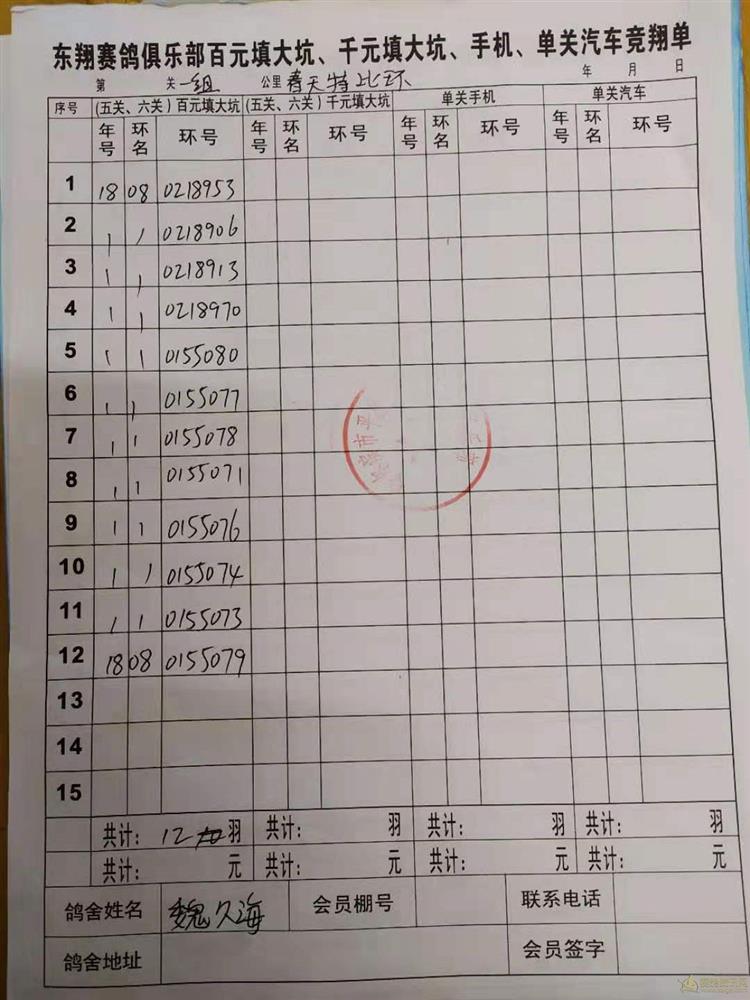 东翔赛鸽俱乐部百元填大坑、千元填大坑、手机、单关汽车竞翔单
第 关 一组 公里 春天特比环 年 月 日
序号 (五关、六关)百元填大坑 (五关、六关)千元填大坑 单关手机 单关汽车
年号 环名 环号 年号 环名 环号 年号 环名 环号 年号 环名 环号
1 18 08 0218953
2 、 、 0218906
3 、 、 0218913
4 、 、 0218970
5 、 、 0155080
6 、 、 0155077
7 、 、 0155078
8 、 、 0155071
9 、 、 0155076
10 、 、 0155074
11 、 、 0155073
12 18 08 0155079
13
14
15
共计: 12 羽 共计: 羽 共计: 羽 共计: 羽
共计: 元 共计: 元 共计: 元 共计: 元
鸽舍姓名 魏久海 会员棚号 联系电话
鸽舍地址 会员签字